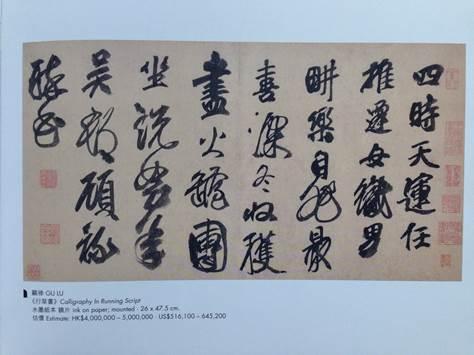 四時天運任
推遷女織男
畊樂自然最
喜深冬收穫
盡火爐團
坐說豐年
吳郡顧祿
醉書
顧祿 GU LU
《行草書》Calligraphy In Running Script
水墨紙本 鏡片 ink on paper; mounted · 26 x 47.5 cm.
估價 Estimate: HK$4,000,000 – 5,000,000 · US$516,100 – 645,200